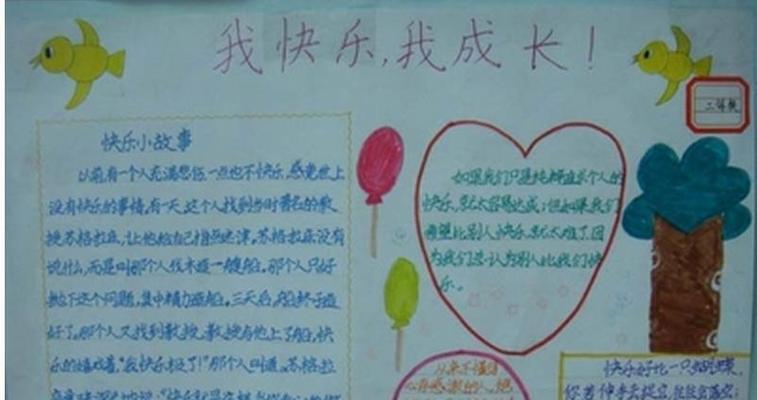 我快乐,我成长!
快乐小故事
以前有一个人充满悲伤,一点也不快乐,感觉世上
没有快乐的事情,有一天,这个人找到当时著名的教
授苏格拉底,让他给自己指点迷津。苏格拉底没有
说什么,而是叫那个人伐木造一艘船。那个人只好
抛下这个问题,集中精力造船。三天后,船终于造
好了。那个人又找到教授,教授与他上了船,快
乐的嬉戏着,"我快乐极了!"那个人叫道,苏格拉
如果我们只是纯粹追求个人的
快乐,就太容易达成;但如果我们
希望比别人快乐,就太难了,因
为我们总认为别人比我们快
乐。
从来不懂得
快乐好比一只蝴蝶,
你若伸手去捉它,往往会落空;